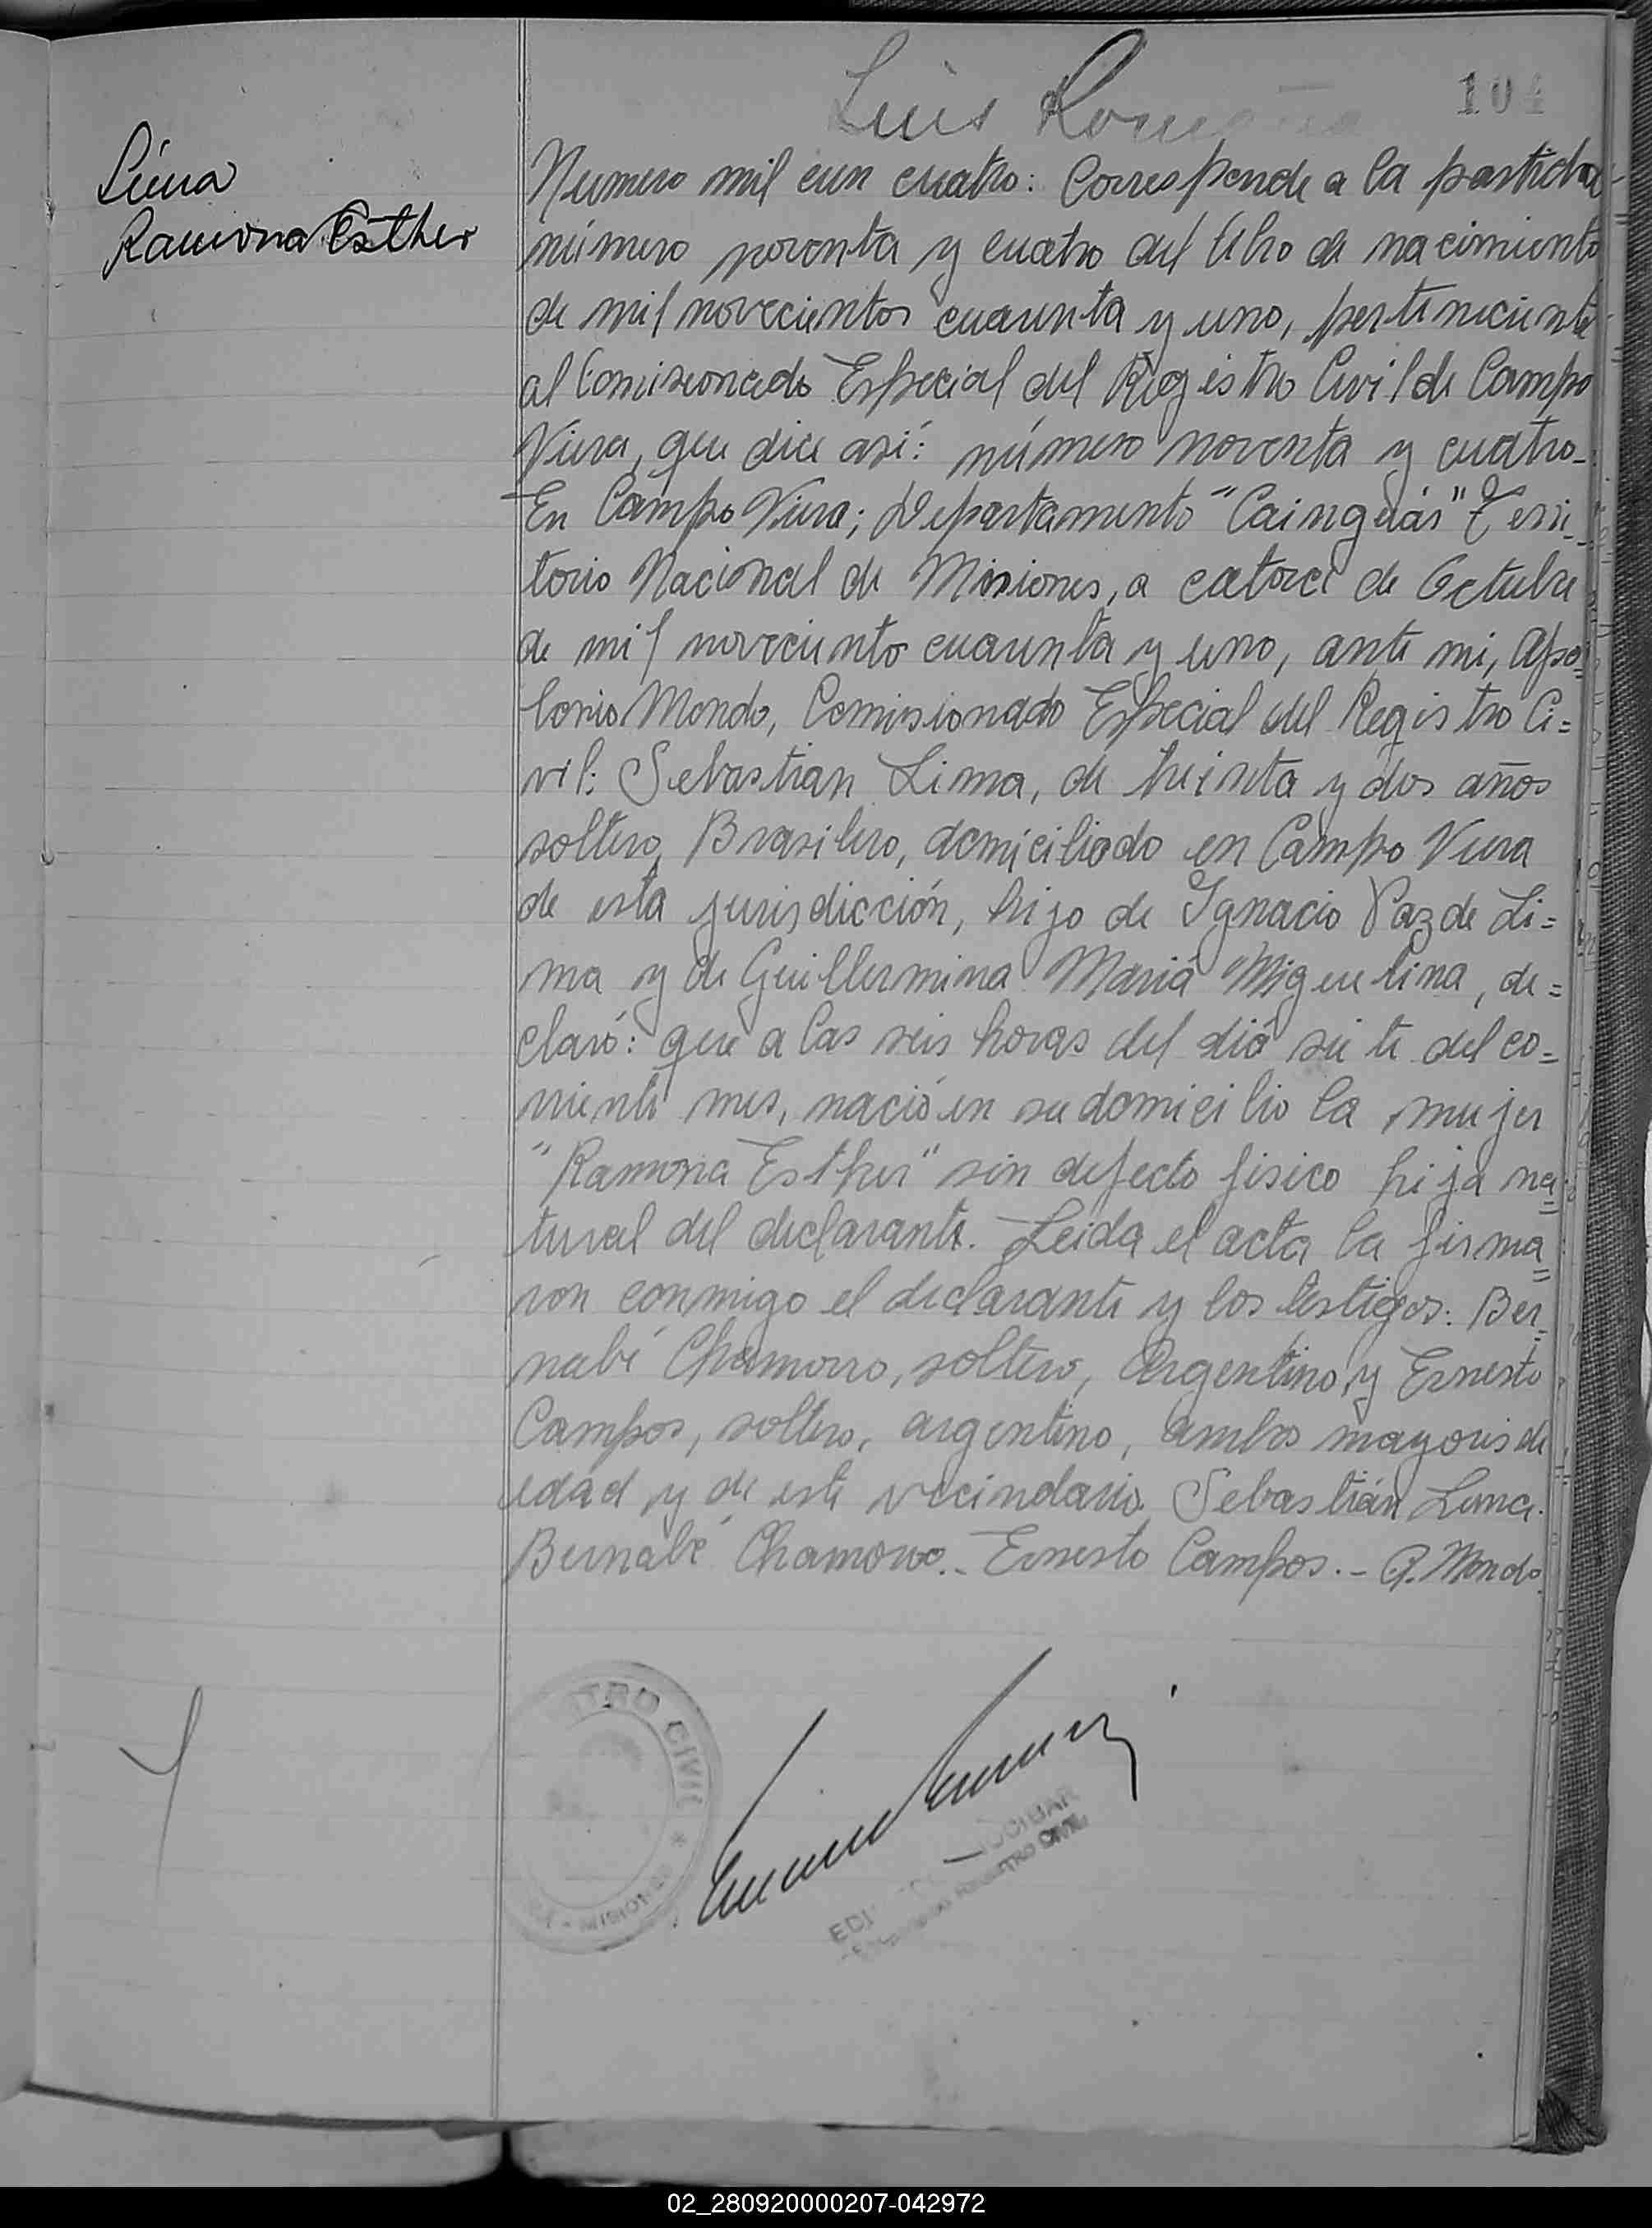 Luis
104
Lima
Ramona Esther
Numero mil cien cuatro: Corresponde a la partida
número noventa y cuatro del libro de nacimiento
de mil novecientos cuarenta y uno, perteneciente
al Comisionado Especial del Registro Civil de Campo
Viera, que dice así: número noventa y cuatro_
En Campo Viera; Departamento "Cainguás" Terri_
torio Nacional de Misiones, a catorce de Octubre
de mil noveciento cuarenta y uno, ante mi, Apo_
lonio Mondo, Comisionado Especial del Registro Ci=
vil: Sebastian Lima, de treinta y dos años
soltero, Brasilero, domiciliado en Campo Viera
de esta jurisdicción, hijo de Ignacio Paz de Li=
ma y de Guillermina Mariá Miguelina, de=
claró: que a las seis horas del diá siete del co=
rriente mes, nació en su domicilio la mujer
"Ramona Esther" sin defecto fisico hija na=
tural del declarante. Leida el acta la firma=
ron conmigo el declarante y los testigos: Ber=
nabé Chamorro, soltero, Argentino, y Ernesto
Campos, soltero, argentino, ambos mayores de
edad y de este vecindario. Sebastián Lima.
Bernabé Chamorro.- Ernesto Campos.- A. Mondo.
CIVIL
REGISTRO CIVIL
02_280920000207-042972